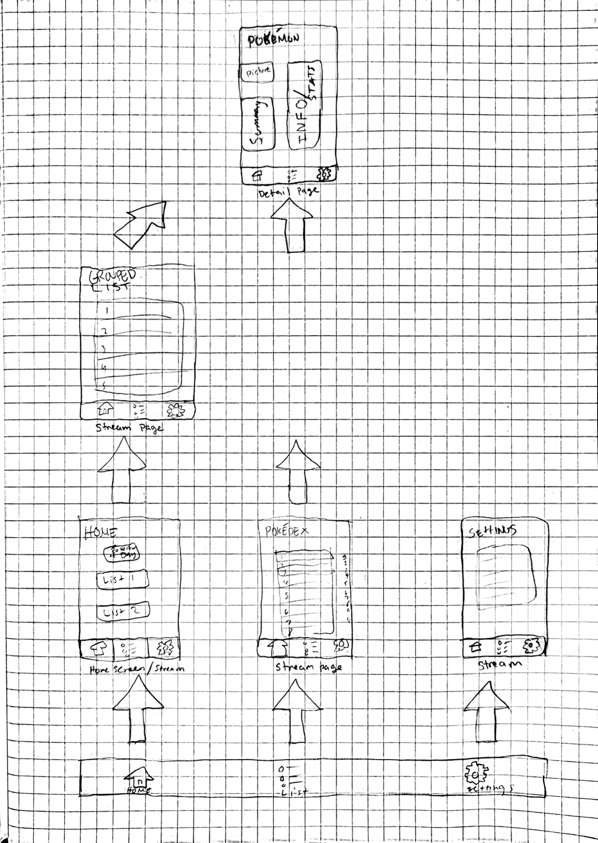 POKÉMON
Picture
Summary
INFO/
STATS
Detail Page
GROUPED
LIST
1
2
3
4
5
Stream Page
HOME
Day
List 1
List 2
Home Screen/Stream
POKÉDEX
Stream page
SETTINGS
Stream
HOME
List
settings